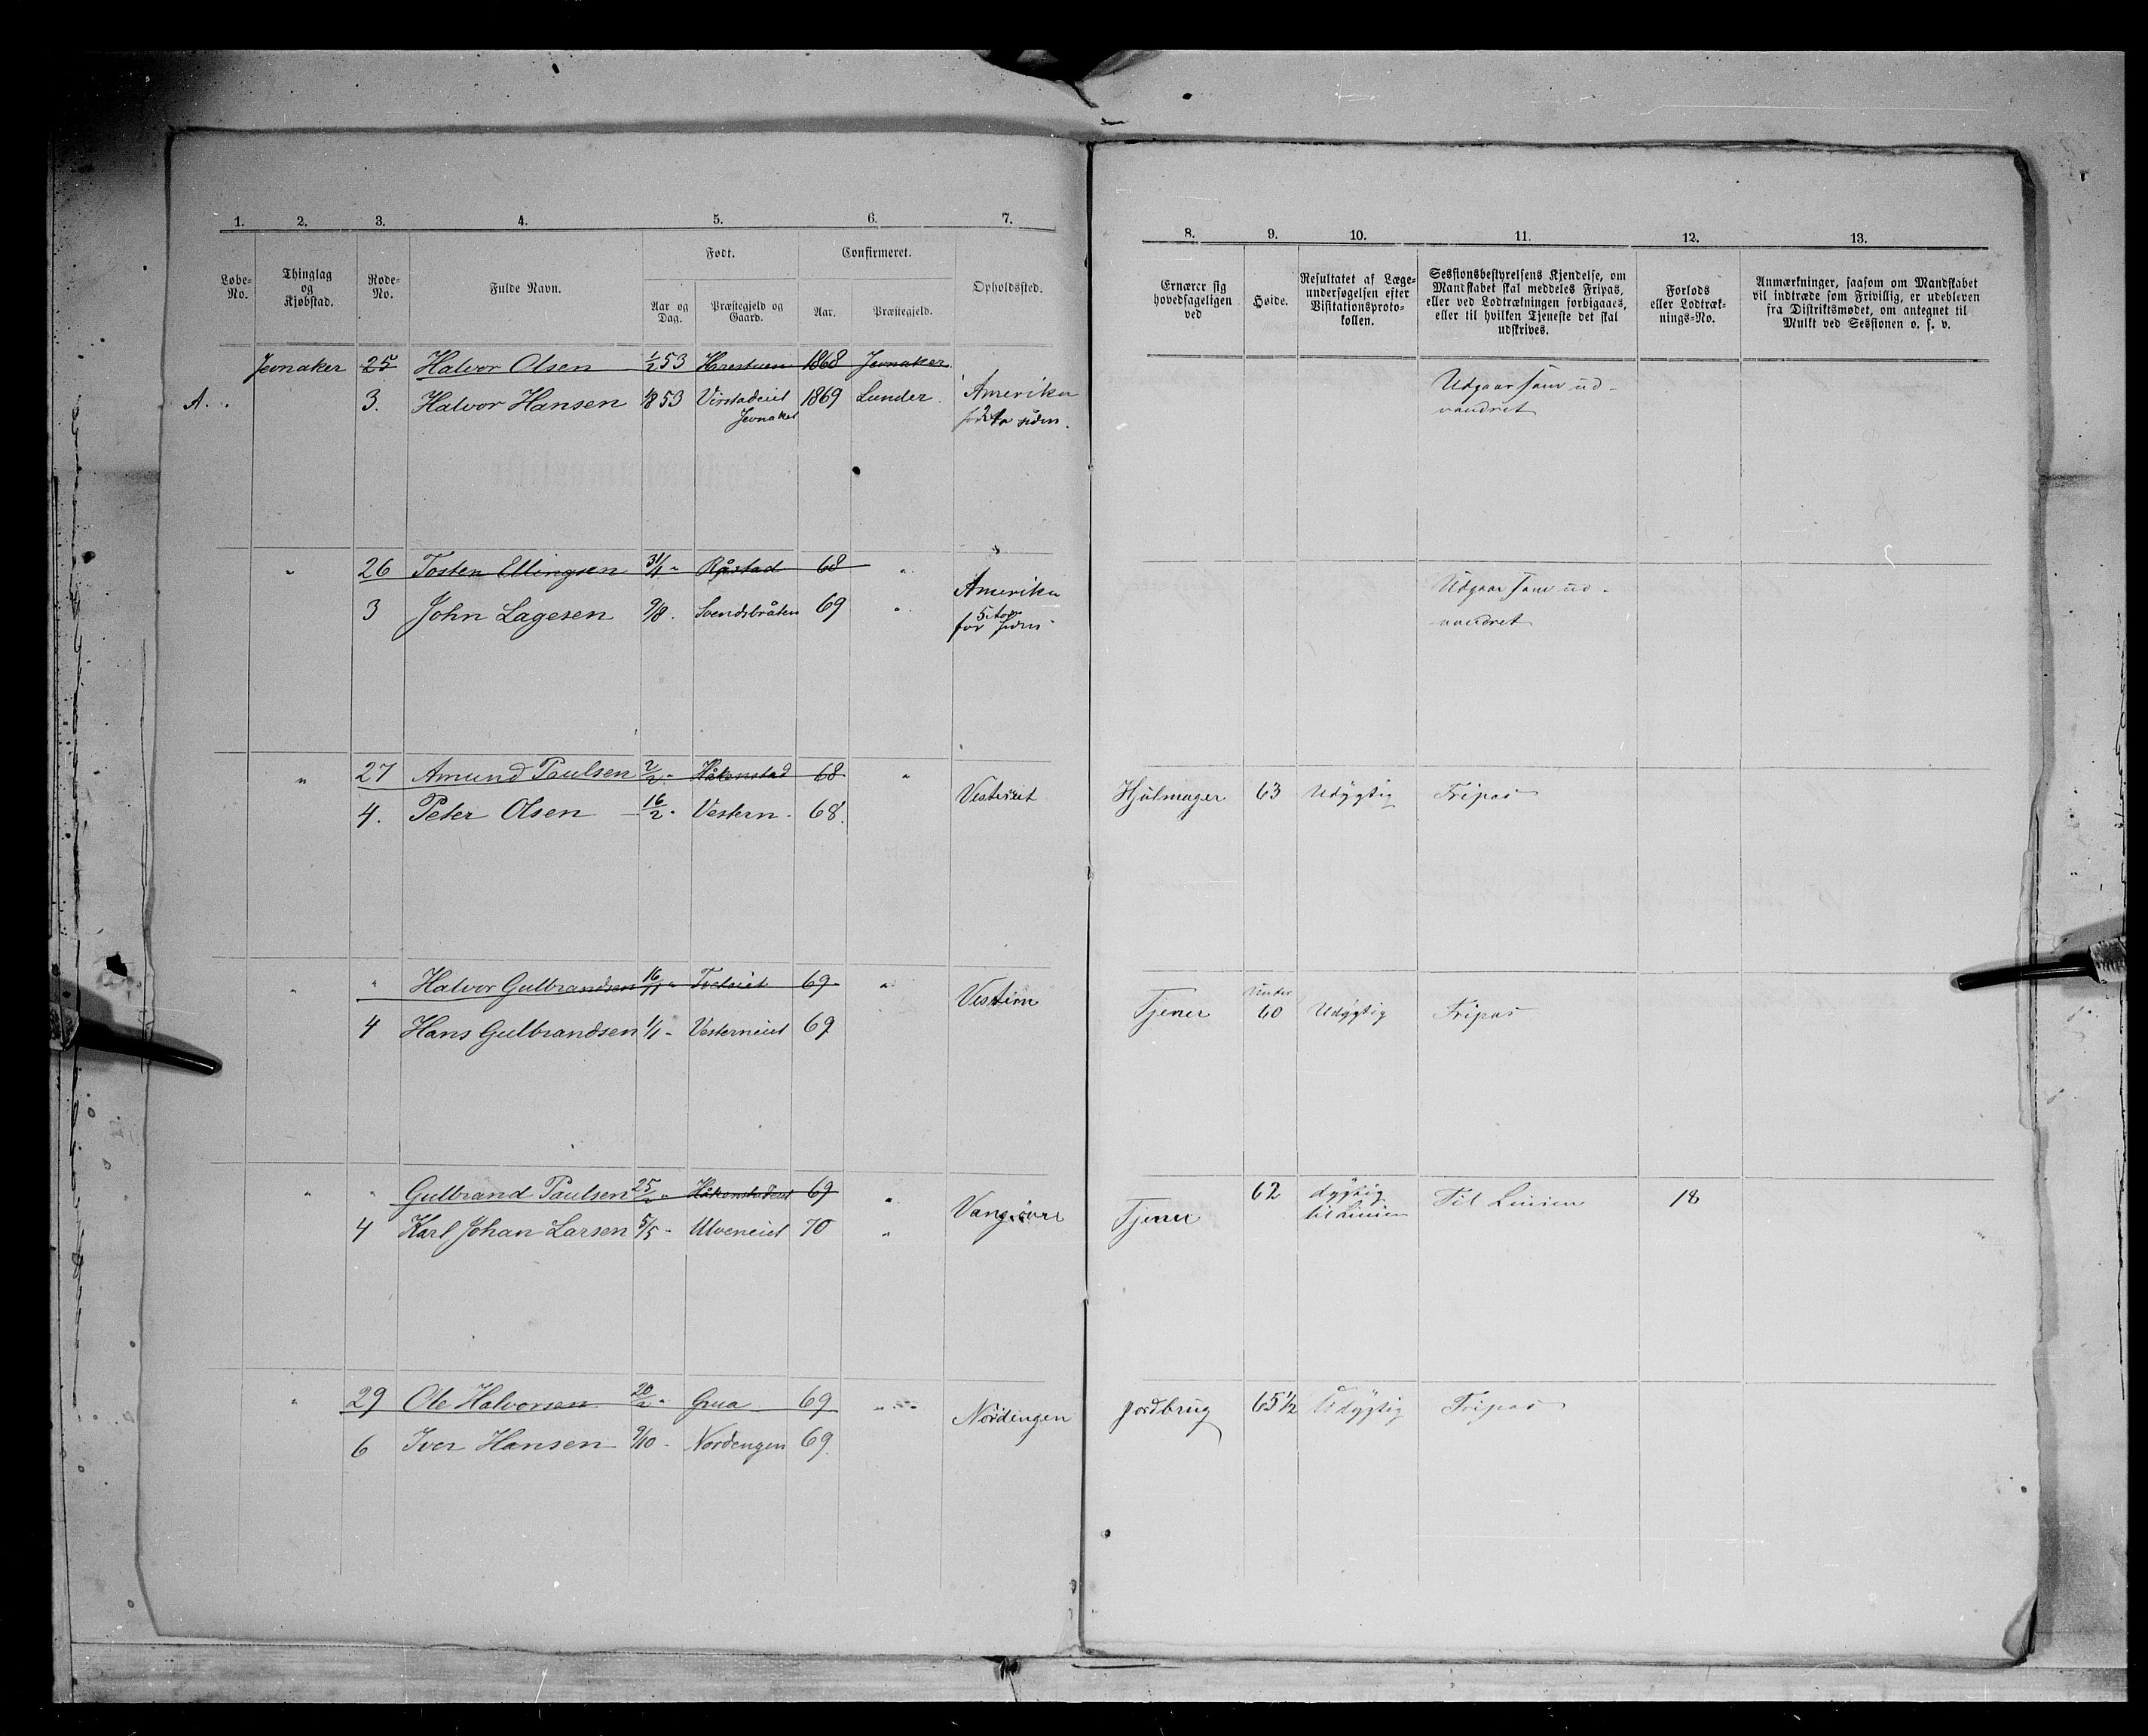 1. 2. 3. 4. 5. 6. 7.
Løbe-No. Thinglag og Kjøbstad. Rode-No. Fulde Navn. Født. Confirmeret. Opholdssted.
Aar og Dag. Præstegjeld og Gaard. Aar. Præstegjeld.
8. 9. 10. 11. 12. 13.
Ernærer sig hovedsageligen ved
Høide.
Resultatet af Læge-undersøgelsen efter Visitationsproto-kollen.
Sessionsbestyrelsens Kjendelse, om Mandskabet skal meddeles Fripas, eller ved Lodtrækningen forbigaaes, eller til hvilken Tjeneste det skal udskrives.
Forlods eller Lodtræk-nings-No.
Anmærkninger, saasom om Mandskabet vil indtræde som Frivillig, er udebleven fra Distriktsmødet, om antegnet til Mulkt ved Sessionen o. s. v.
Jevnaker 25 Halvor Olsen 1/2 53 Harestuen 1868 Jevnaker
A. 3. Halvor Hansen 1/8 53 Virstadeiet Jevnaker 1869 Lunder. Amerika for 2 Ar siden. Udgaar som ud-
vandret
" 26 Tosten Ellingsen 31/1 " Råstad 68 "
3 John Lagesen 9/8. Svendsbråten 69 " Amerika for 5 Aar siden Udgaar som ud-
vandret
" 27 Amund Paulsen 2/2 " Håkenstad 68 "
4. Peter Olsen 16/2 " Vestern 68. Vesterneiet Hjulmager 63 Udygtig Fripas
" " Halvor Gulbrandsen 16/11 " Tveteiet 69 "
4 Hans Gulbrandsen 1/1 " Vesterneiet 69 Vestern Tjener Under 60 Udygtig Fripas
" " Gulbrand Paulsen 25/2 " Håkenstadeiet 69 "
4 Karl Johan Larsen 5/5 " Ulveneiet 70 " Tjener 62 dygtig til Linien Til Linien 18
" 29 Ole Halvorsen 20/2 " Grua 69 "
6 Iver Hansen 9/10 " Nordengen 69. Nordengen Jordbrug 65 1/2 Udygtig Fripas